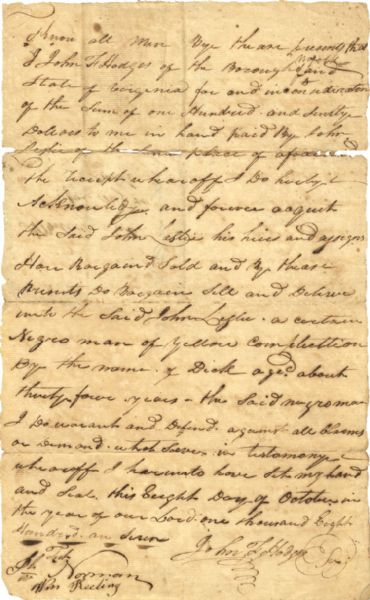 Know all Men Bye theare presents that
I John F Hodges of the Borough and
State of Virginia for and in consideration
of the Sum of one Hundred and
Dolloes to me in hand paid By John
Leslie of the same place of
the receipt wharoff I Do hereby
Acknowledge and forever acquit
the Said John Leslie his heirs and assigns
Have Bargaind Sold and By these
Presents Do Bargain Sell and Deliver
unto the Said John Leslie a certain
Negro man of Yellow
Bye the name of Dick aged about
thirty four years - the Said negro man
I Do warant and Defend against all Claims
or Demand whatSoever in testimony
wharoff I hereunto have Set my hand
and Seal this Eight Day of October in
the year of our Lord one thousand Eight
Hundred an Seven
John F Hodges
Test
Norman
Wm Keeling